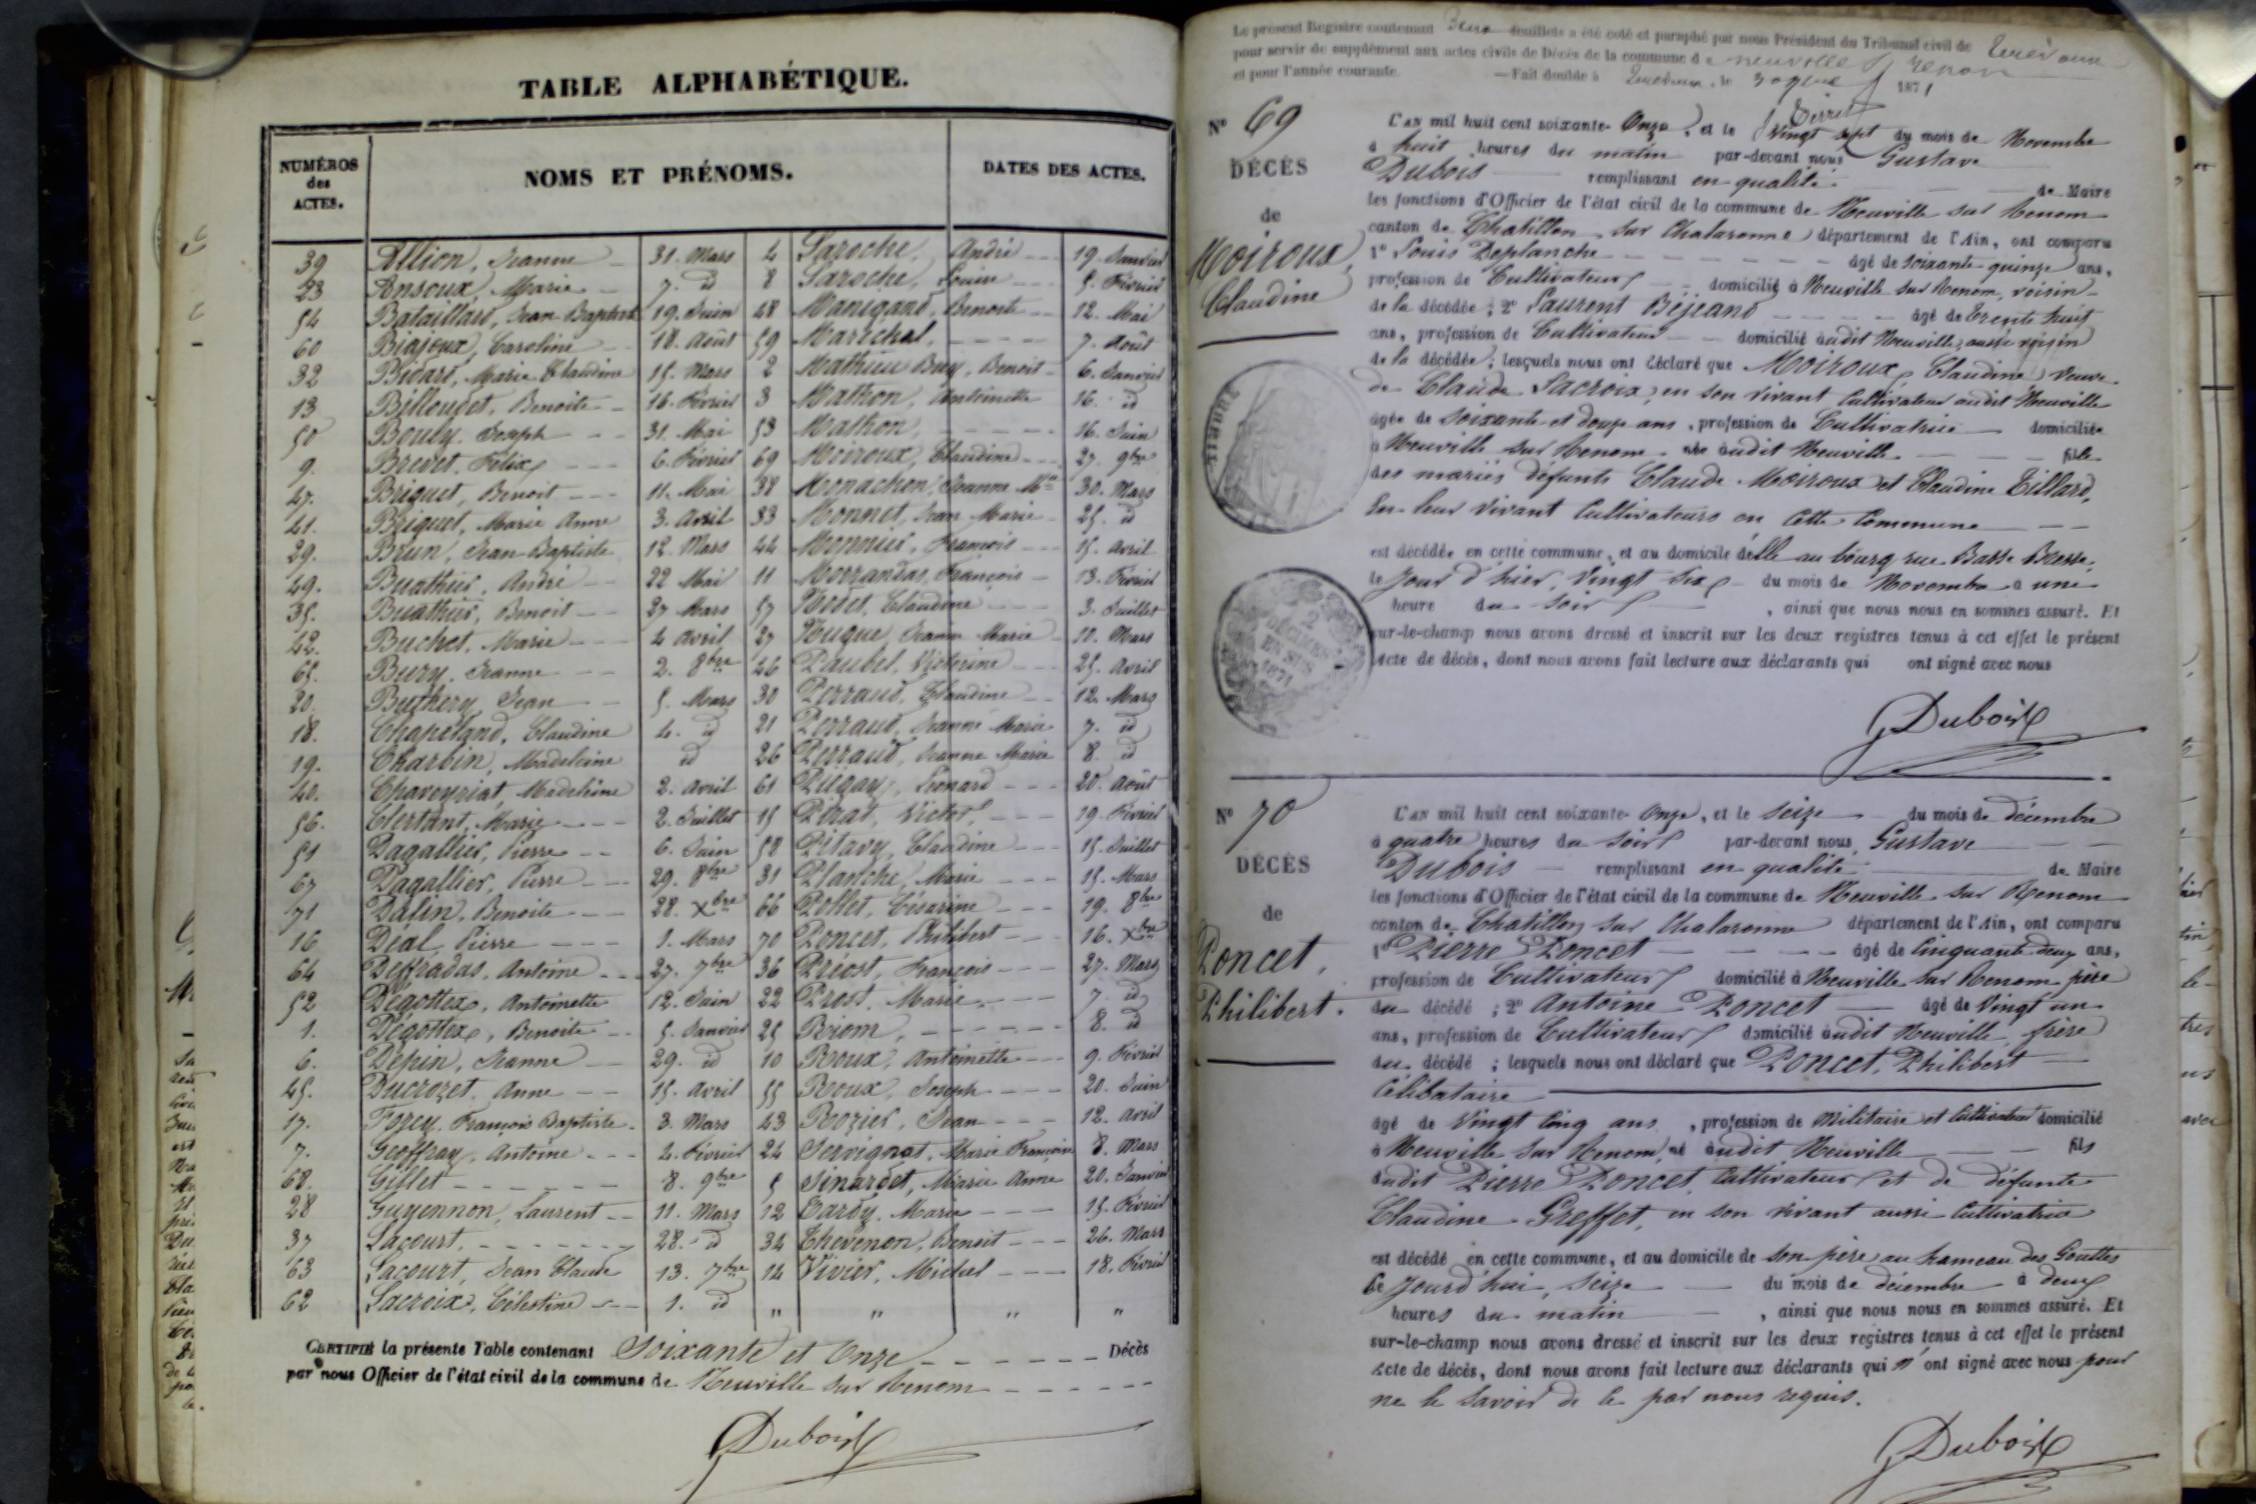 TABLE ALPHABÉTIQUE.
NUMÉROS des ACTES. NOMS ET PRÉNOMS. DATES DES ACTES.
39 Allion, Jeanne 31. Mars 4 Laroche, André 19. Janvier
23 Ansoux, Marie 7. id 8 Laroche, Louise 5. Février
54 Bataillard, Jean Baptiste 19. Juin 48 Manigand, Benoite 12. Mai
60 Biajoux, Caroline 18. Août 59 Maréchal, 7. Août
32 Bicard, Marie Claudine 15. Mars 2 Mathieu Buy, Benoit 6. Janvier
13 Billoudet, Benoite 16. Février 3 Mathon, Antoinette 16. id
50 Bouly, Joseph 31. Mai 53 Mathon, 16. Juin
9. Brevet, Félix 6. Février 69 Moiroux, Claudine 27. 9bre
47. Briquet, Benoit 11. Mai 38 Monachon, Jeanne Mie 30. Mars
41. Briquet, Marie Anne 3. Avril 33 Monnet, Jean Marie 25. id
29. Brun, Jean Baptiste 12. Mars 44 Monnier, François 15. Avril
49. Buathier, André 22 Mai 11 Morrandas, François 13. Février
35. Buathier, Benoit 27 Mars 57 Nodet, Claudine 3. Juillet
42. Buchet, Marie 4 Avril 27 Nugue, Jeanne Marie 10. Mars
65. Bury, Jeanne 2. 8bre 46 Paubel, Victorine 25. Avril
20. Buthery, Jean 5. Mars 30 Perraud, Claudine 12. Mars
18. Chapeland, Claudine 4. id 21 Perraud, Jeanne Marie 7. id
19. Charbin, Madeleine id 26 Perraud, Jeanne Marie 8. id
40. Chaveyriat, Madeleine 2. Avril 61 Pugay, Léonard 20. Août
56. Clertant, Marie 2. Juillet 15 Pirat, Victor, 19. Février
51 Dagallier, Pierre 6. Juin 58 Pitavy, Claudine 15. Juillet
67 Dagallier, Pierre 29. 8bre 31 Planche, Marie 15. Mars
71 Dalin, Benoite 28. Xbre 66 Pollet, Césarine 19. 8bre
16 Déal, Pierre 1. Mars 70 Poncet, Philibert 16. Xbre
64 Deffradas, Antoine 27. 7bre 36 Priost, François 27. Mars
52 Dégottex, Antoinette 12. Juin 22 Prost, Marie 7. id
1. Dégottex, Benoite 5. Janvier 25 Riom, 8. id
6. Depin, Jeanne 29. id 10 Roux, Antoinette 9. Février
45. Ducrozet, Anne 15. Avril 55 Roux, Joseph 20. Juin
17. Forey, François Baptiste 3. Mars 43 Rozier, Jean 12. Avril
7. Geoffray, Antoine 4. Février 24 Servignat, Marie Françoise 8. Mars
68. Gillet 8. 9bre 5 Sinardet, Marie Anne 20. Janvier
28 Guyennon, Laurent 11. Mars 12 Tardy, Marie 15. Février
37 Lacourt, 28. id 34 Thevenon, Benoit 26. Mars
63 Lacourt, Jean Claude 13. 7bre 14 Vivier, Michel 18. Février
62 Lacroix, Célestine 1. id " " " "
CERTIFIÉ la présente Table contenant Soixante et Onze Décès
par nous Officier de l'état civil de la commune de Neuville sur Renom
Dubois
Le présent Registre contenant Deux feuillets a été coté et paraphé par nous Président du Tribunal civil de Trévoux
pour servir de supplément aux actes civils de Décès de la commune de neuville s/ renon
et pour l'année courante. — Fait double à Trévoux, le 1871
No 69
DÉCÈS
de
Moiroux,
Claudine
L'AN mil huit cent soixante-Onze, et le Vingt sept du mois de Novembre
à huit heures du matin par-devant nous Gustave
Dubois remplissant en qualité de Maire
les fonctions d'Officier de l'état civil de la commune de Neuville sur Renom
canton de Chatillon sur Chalaronne département de l'Ain, ont comparu
1o Louis Deplanche âgé de soixante quinze ans,
profession de Cultivateur domicilié à Neuville sur Renom, voisin
de la décédée ; 2o Laurent Béjeand âgé de trente huit
ans, profession de Cultivateur domicilié audit Neuville, aussi voisin
de la décédée ; lesquels nous ont déclaré que Moiroux Claudine Veuve
de Claude Lacroix, en son vivant Cultivateur audit Neuville
âgée de soixante et douze ans, profession de Cultivatrice domiciliée
à Neuville sur Renom née audit Neuville fille
des mariés défunts Claude Moiroux et Claudine Tillard,
En leur vivant Cultivateurs en Cette Commune
est décédée en cette commune, et au domicile d'elle au bourg rue Basse Bresse,
le Jour d'hier, Vingt six du mois de Novembre à une
heure du soir, ainsi que nous nous en sommes assuré. Et
sur-le-champ nous avons dressé et inscrit sur les deux registres tenus à cet effet le présent
Acte de décès, dont nous avons fait lecture aux déclarants qui ont signé avec nous
2
DÉCIMES
EN SUS
1871
G Dubois
No 70
DÉCÈS
de
Poncet,
Philibert.
L'AN mil huit cent soixante-Onze, et le seize du mois de décembre
à quatre heures du soir par-devant nous, Gustave
Dubois remplissant en qualité de Maire
les fonctions d'Officier de l'état civil de la commune de Neuville sur Renom
canton de Chatillon sur Chalaronne département de l'Ain, ont comparu
1o Pierre Poncet âgé de Cinquante deux ans,
profession de Cultivateur domicilié à Neuville sur Renom père
du décédé ; 2o Antoine Poncet âgé de Vingt un
ans, profession de Cultivateur domicilié audit Neuville frère
du décédé ; lesquels nous ont déclaré que Poncet, Philibert
Célibataire
âgé de Vingt Cinq ans, profession de Militaire et Cultivateur domicilié
à Neuville sur Renom, né audit Neuville fils
dudit Pierre Poncet, Cultivateur et de défunte
Claudine Greffet, en son vivant aussi Cultivatrice
est décédé en cette commune, et au domicile de son père au hameau des Gouttes
Ce Jourd'hui, seize du mois de décembre à deux
heures du matin, ainsi que nous nous en sommes assuré. Et
sur-le-champ nous avons dressé et inscrit sur les deux registres tenus à cet effet le présent
Acte de décès, dont nous avons fait lecture aux déclarants qui n'ont signé avec nous pour
ne le savoir de ce par nous requis.
G Dubois